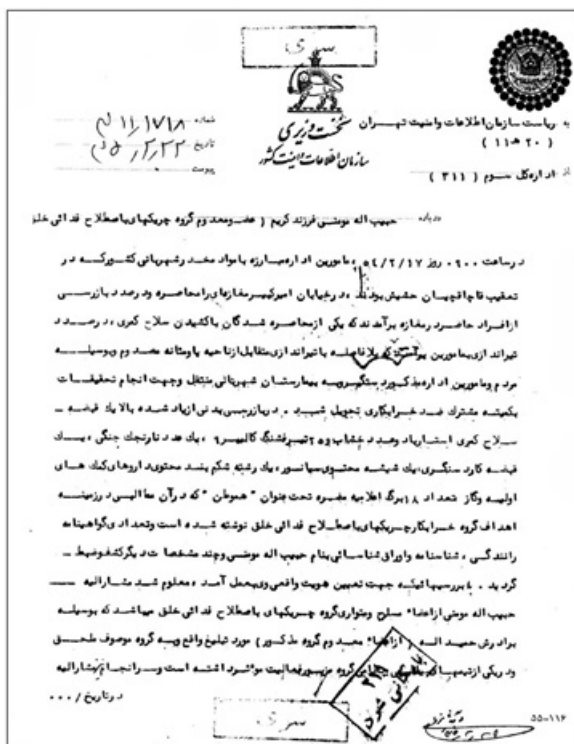 سری
نخست وزیری
سازمان اطلاعات و امنیت کشور
به ریاست سازمان اطلاعات وامنیت تهران
( ۲۰ هـ ۱۱ )
از اداره کل سوم ( ۳۱۱ )
شماره
تاریخ
پیوست
درباره حبیب اله مومنی فرزند کریم ( عضو معدوم گروه چریکهای باصطلاح فدائی خلق
در ساعت ۰۹۰۰ روز ۵۴/۲/۱۷ مامورین اداره مبارزه با مواد مخدر شهربانی کشور که در
تعقیب قاچاقچیان حشیش بودند ، در خیابان امیرکبیر مغازه‌ای را محاصره و در صدد بازرسی
از افراد حاضر در مغازه برآمدند که یکی از محاصره شدگان با کشیدن سلاح کمری ، در صدد
تیراندازی بمامورین برآمد که بلافاصله با تیراندازی متقابل از ناحیه پا و مثانه مصدوم و بوسیله
مردم و مامورین اداره مذکور دستگیر و به بیمارستان شهربانی منتقل و جهت انجام تحقیقات
بکمیته مشترک ضد خرابکاری تحویل شد . در بازرسی بدنی از یاد شده بالا یک قبضه
سلاح کمری استار با دو عدد خشاب و ۲۵ تیر فشنگ کالیبر ۹ ، یک عدد نارنجک جنگی ، یک
قبضه کارد سنگری ، یک شیشه محتوی سیانور ، یک رشته شکم بند محتوی داروهای کمک های
اولیه وگاز تعداد ۱۸ برگ اعلامیه مضره تحت عنوان " هموطن " که در آن مطالبی در زمینه
اهداف گروه خرابکار چریکهای باصطلاح فدائی خلق نوشته شده است و تعدادی گواهینامه
رانندگی ، شناسنامه و اوراق شناسائی بنام حبیب اله مومنی و چند مشخصات دیگر کشف و ضبط
گردید . با بررسیهائیکه جهت تعیین هویت واقعی وی بعمل آمد ، معلوم شد مشارالیه
حبیب اله مومنی از اعضاء مسلح و متواری گروه چریکهای باصطلاح فدائی خلق میباشد که بوسیله
برادرش حمید اله ( از اعضاء معدوم گروه مذکور ) مورد تبلیغ واقع و به گروه موصوف ملحق
و در یکی از تیمهای گروه مزبور فعالیت موثر داشته است و سرانجام مشارالیه
در تاریخ / ۰۰۰
بایگانی شود
سری
۵۵-۱۱۶